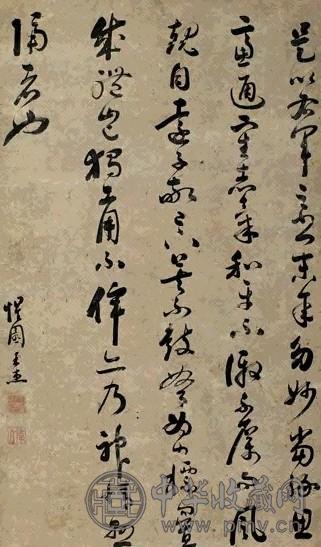 是以右軍之書末年多妙當緣思
慮通審志氣和平不激不厲而風
規自遠子敬已下莫不鼓努為力標置
成體豈獨工用不侔亦乃神情懸
隔者也
惺園王杰
中华收藏网